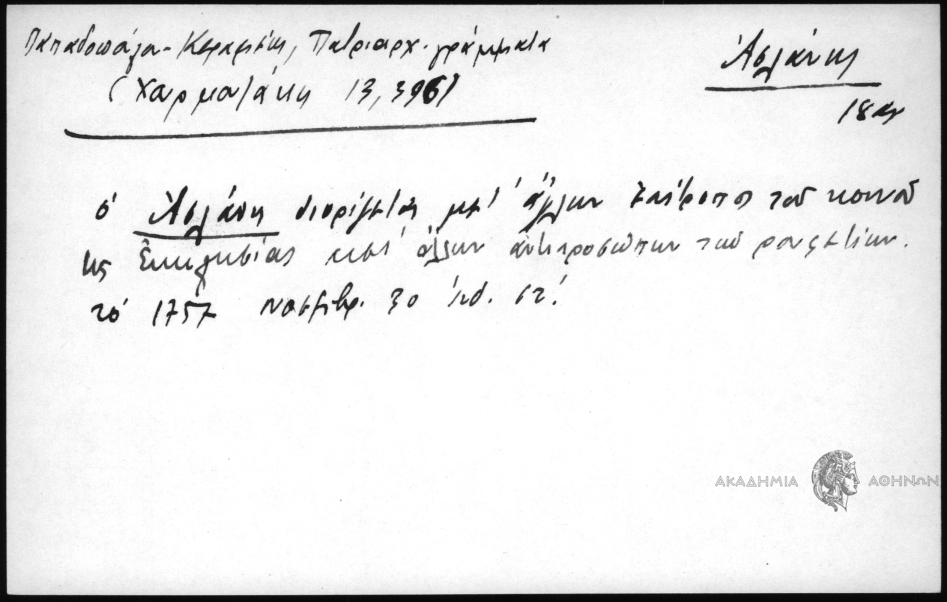 Παπαδοπούλου-Κεραμέως, Πατριαρχ. γράμματα
(Χαρματάκη 13, 396)
Ἀσλάνης
18 αι
ὁ Ἀσλάνης διορίζεται μετ' ἄλλων ἐπίτροπος τοῦ κοινοῦ
τῆς Ἐκκλησίας μετ' ἄλλων ἀντιπροσώπων τῶν ρουφετίων.
τὸ 1757 Νοεμβρ. 30 ἰνδ. στ!
ΑΚΑΔΗΜΙΑ ΑΘΗΝΩΝ